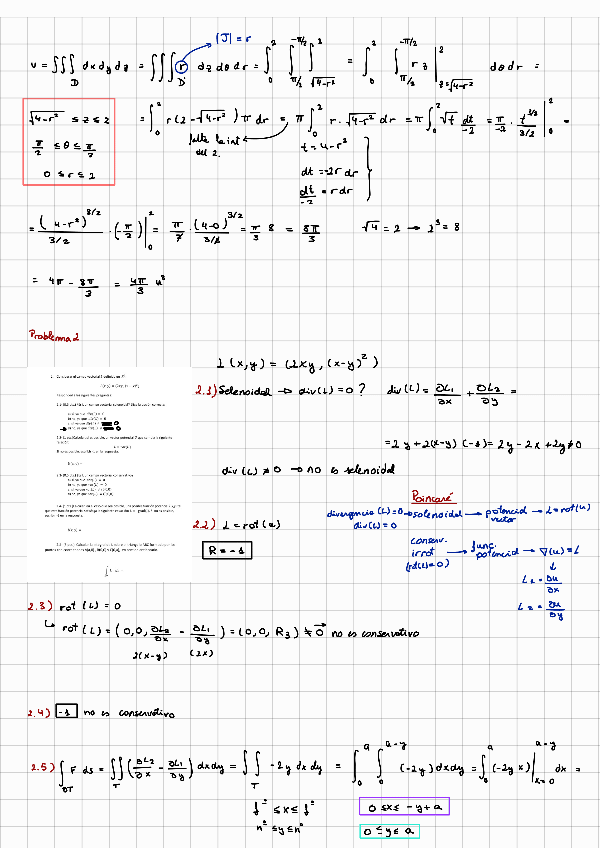 |J| = r
v = ∭_D dx dy dz = ∭_D r dz dθ dr = ∫_0^2 ∫_{π/2}^{-π/2} ∫_{√4-r²}^2 = ∫_0^2 ∫_{π/2}^{-π/2} r z |_{z=√4-r²}^2 dθ dr =
√4-r² ≤ z ≤ 2
π/2 ≤ θ ≤ π/2
0 ≤ r ≤ 2
= ∫_0^2 r (2 - √4-r²) π dr = π ∫_0^2 r · √4-r² dr = π ∫_0^2 √t dt/-2 = π/-2 · t^{3/2}/3/2 |_0^2 =
falta la int
del 2.
t = 4-r²
dt = -2r dr
dt/-2 = r dr
= (4-r²)^{3/2}/3/2 · (-π/2) |_0^2 = π/2 · (4-0)^{3/2}/3/2 = π/3 8 = 8π/3
√4 = 2 → 2³ = 8
= 4π - 8π/3 = 4π/3 u³
Problema 2
L(x,y) = (2xy, (x-y)²)
2.1) Selenoidal → div(L) = 0 ? div(L) = ∂L₁/∂x + ∂L₂/∂y =
= 2y + 2(x-y) (-1) = 2y - 2x + 2y ≠ 0
div(L) ≠ 0 → no es selenoidal
Poincaré
2.2) L = rot(u)
R = -1
divergencia (L) = 0 → solenoidal → potencial vector → L = rot(u)
div(L) = 0
conserv.
irrot
(rot(L) = 0)
→ func. potencial → ∇(u) = L
L₁ = ∂u/∂x
L₂ = ∂u/∂y
2.3) rot (L) = 0
↳ rot (L) = (0, 0, ∂L₂/∂x - ∂L₁/∂y) = (0, 0, R₃) ≠ 0⃗ no es conservativo
2(x-y) (2x)
2.4) -1 no es conservativo
2.5) ∫_{∂T} F ds = ∬_T (∂L₂/∂x - ∂L₁/∂y) dx dy = ∬_T -2y dx dy = ∫_0^a ∫_0^{a-y} (-2y) dx dy = ∫_0^a (-2y x) |_{x=0}^{a-y} dx =
fº ≤ x ≤ fº
nº ≤ y ≤ nº
0 ≤ x ≤ -y + a
0 ≤ y ≤ a